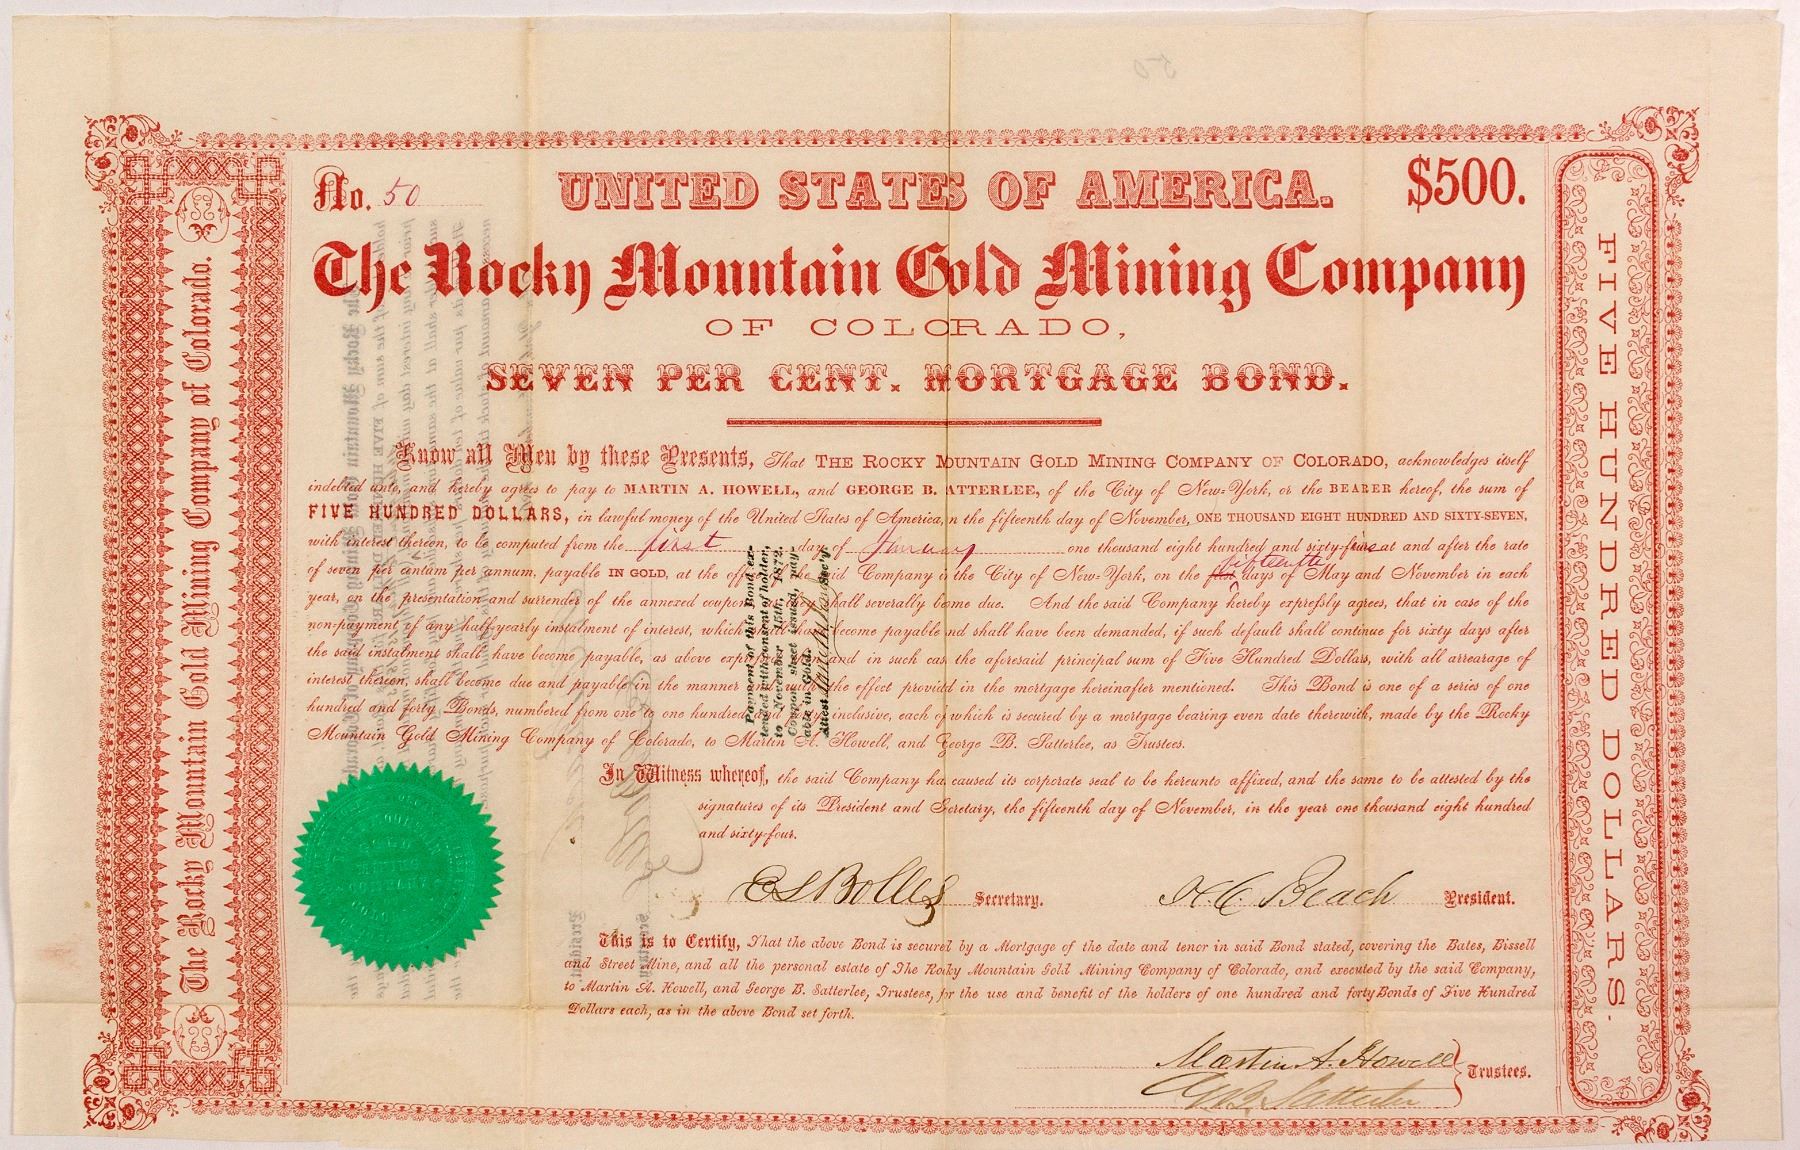 No. 50
UNITED STATES OF AMERICA.
$500.
The Rocky Mountain Gold Mining Company
OF COLORADO,
SEVEN PER CENT. MORTGAGE BOND.
Know all Men by these Presents, That THE ROCKY MUNTAIN GOLD MINING COMPANY OF COLORADO, acknowledges itself
indebted unto, and hereby agrees to pay to MARTIN A. HOWELL, and GEORGE B. ATTERLEE, of the City of New-York, or the BEARER hereof, the sum of
FIVE HUNDRED DOLLARS, in lawful money of the United States of America, n the fifteenth day of November, ONE THOUSAND EIGHT HUNDRED AND SIXTY-SEVEN,
with interest thereon, to be computed from the first day of January one thousand eight hundred and sixty-five at and after the rate
of seven per centum per annum, payable IN GOLD, at the off he said Company in the City of New-York, on the fifteenth days of May and November in each
year, on the presentation and surrender of the annexed coupon they shall severally become due. And the said Company hereby expressly agrees, that in case of the
non-payment of any half-yearly instalment of interest, which shall have become payable nd shall have been demanded, if such default shall continue for sixty days after
the said instalment shall have become payable, as above exp and in such cas the aforesaid principal sum of Five Hundred Dollars, with all arrearage of
interest thereon, shall become due and payable in the manner and with the effect provided in the mortgage hereinafter mentioned. This Bond is one of a series of one
hundred and forty Bonds, numbered from one to one hundred and forty inclusive, each of which is secured by a mortgage bearing even date therewith, made by the Rocky
Mountain Gold Mining Company of Colorado, to Martin A. Howell, and George B. Satterlee, as Trustees.
Payment of this Bond ex-
tended with consent of holder,
to November 15th, 1872.
Coupon sheet issued, pay-
able in Gold.
Attest Sec'y
In Witness whereof, the said Company ha caused its corporate seal to be hereunto affixed, and the same to be attested by the
signatures of its President and Secretary, the fifteenth day of November, in the year one thousand eight hundred
and sixty-four.
E S Bolles Secretary.
H. C. Beach President.
This is to Certify, That the above Bond is secured by a Mortgage of the date and tenor in said Bond stated, covering the Bates, Bissell
and Street Mine, and all the personal estate of The Rocky Mountain Gold Mining Company of Colorado, and executed by the said Company,
to Martin A. Howell, and George B. Satterlee, Trustees, for the use and benefit of the holders of one hundred and forty Bonds of Five Hundred
Dollars each, as in the above Bond set forth.
Martin A. Howell
G. B. Satterlee
Trustees.
The Rocky Mountain Gold Mining Company of Colorado.
FIVE HUNDRED DOLLARS.
50